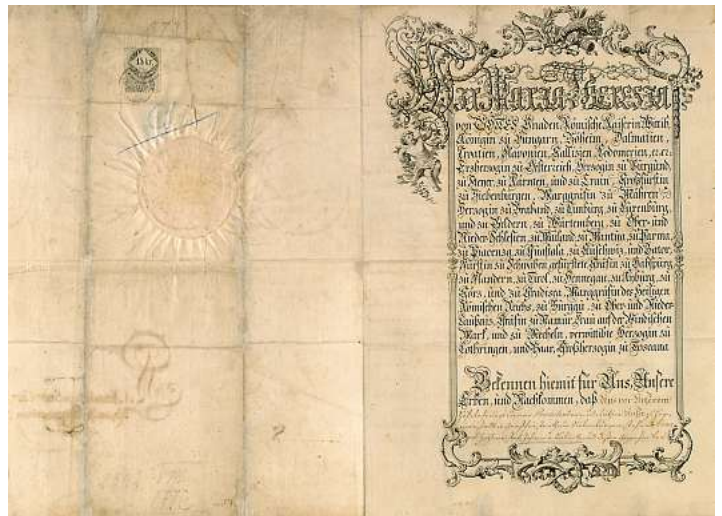 15 kr.
Wir Maria Theresia
von GOttes Gnaden Römische Kaiserin Wittib,
Königin zu Hungarn, Böheim, Dalmatien,
Croatien, Slavonien, Gallizien, Lodomerien, ꝛc. ꝛc.
Erzherzogin zu Oesterreich, Herzogin zu Burgund,
zu Steyer, zu Kärnten, und zu Crain, Großfürstin
zu Siebenbürgen, Marggräfin zu Mähren
Herzogin zu Braband, zu Limburg, zu Luxenburg,
und zu Geldern, zu Würtemberg, zu Ober- und
Nieder-Schlesien, zu Mailand, zu Mantua, zu Parma,
zu Piacenza, zu Guastala, zu Auschwiz, und Zator,
Fürstin zu Schwaben, gefürstete Gräfin zu Habspurg,
zu Flandern, zu Tirol, zu Hennegau, zu Kyburg, zu
Görz, und zu Gradisca, Marggräfin des Heiligen
Römischen Reichs, zu Burgau, zu Ober- und Nieder-
Laußniz, Gräfin zu Namur, Frau auf der Windischen
Mark, und zu Mecheln, verwittibte Herzogin zu
Lothringen, und Baar, Großherzogin zu Toscana
Bekennen hiemit für Uns, Unsere
Erben, und Nachkommen, daß